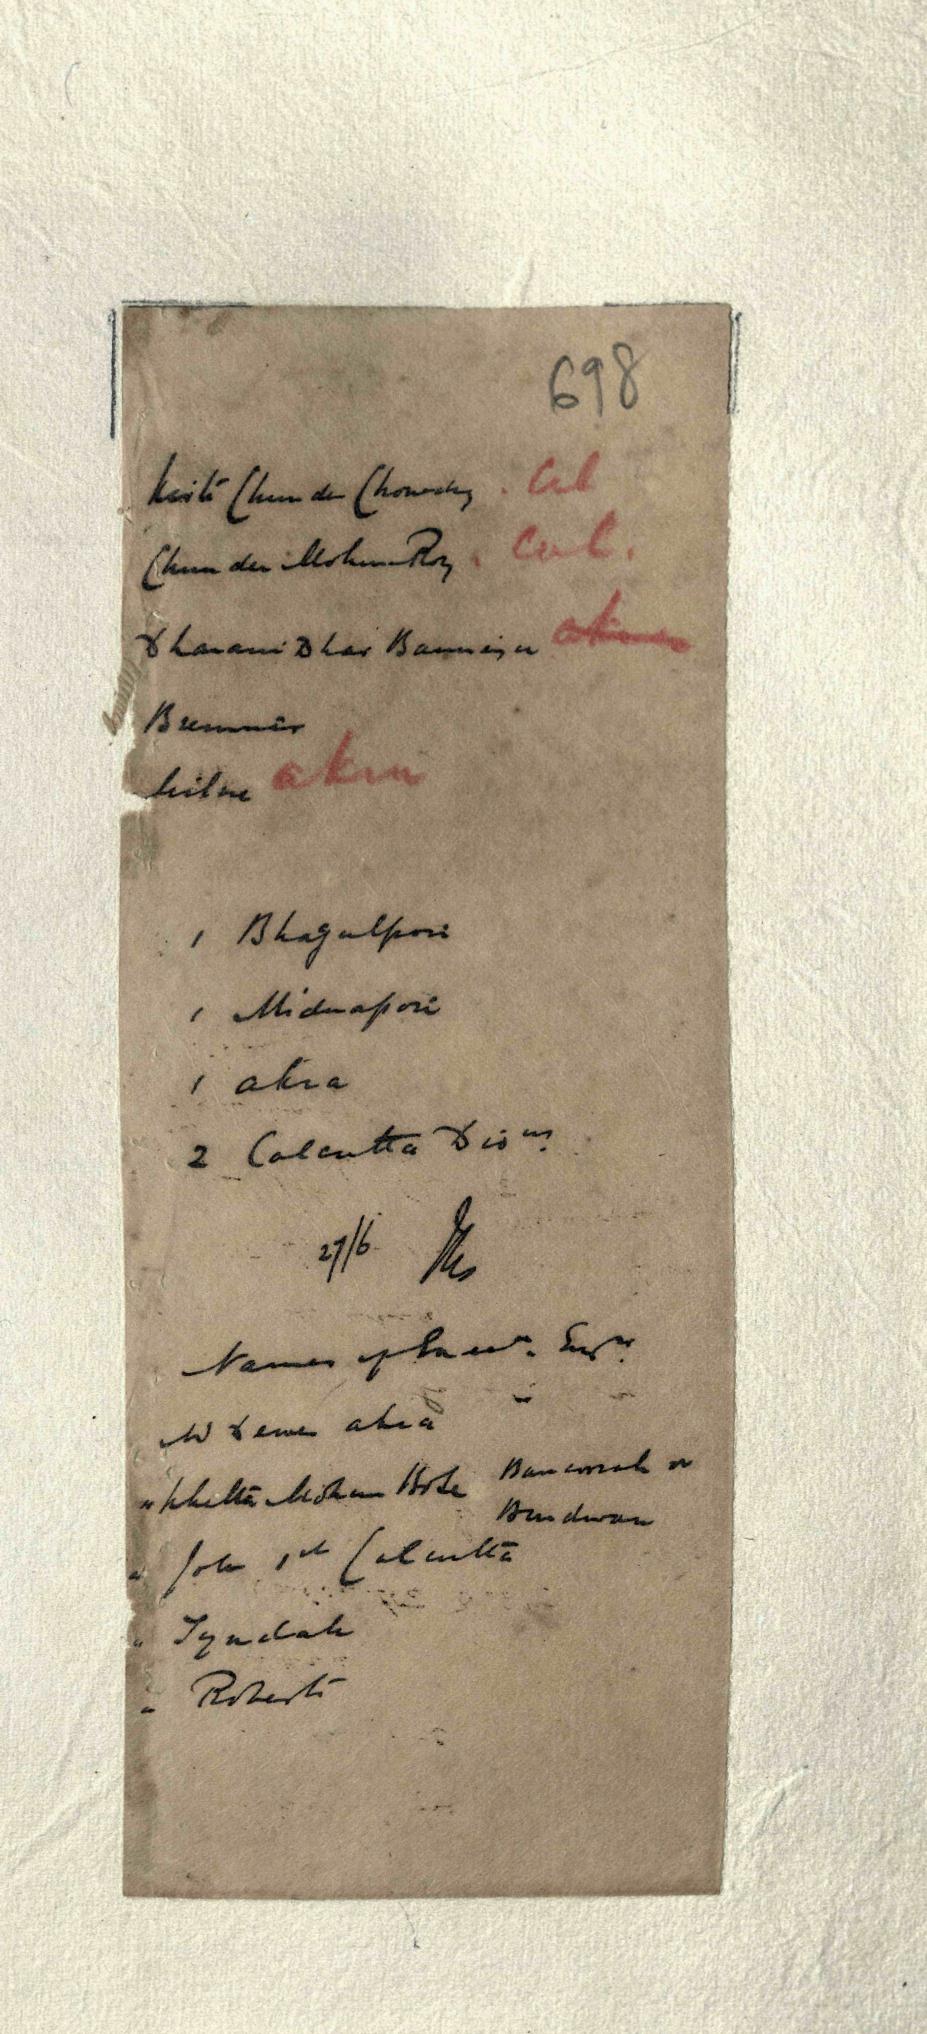 698
Kristo Chunder Chowdry . Cal
Chunder Mohun Roy . Cal.
Dharani Dhar Bannerjee
Bremner
Milne akra
1 Bhagulpore
1 Midnapore
1 akra
2 Calcutta Disns.
27/6
Names of Engrs.
Mr akra
" Mohun Bose Bancoorah or
Burdwan
" 1st Calcutta
" Tyndale
" Roberts